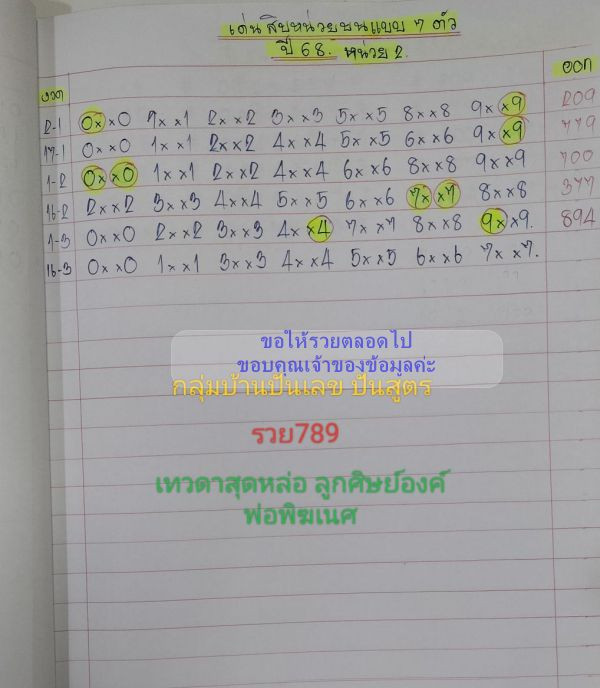 เด่นสิบหน่วยบนแบบ 7 ตัว
ปี 68. หน่วย 2.
งวด ออก
2-1 0x x0 7x x1 2x x2 3x x3 5x x5 8x x8 9x x9 209
17-1 0x x0 1x x1 2x x2 4x x4 5x x5 6x x6 9x x9 779
1-2 0x x0 1x x1 2x x2 4x x4 6x x6 8x x8 9x x9 700
16-2 2x x2 3x x3 4x x4 5x x5 6x x6 7x x7 8x x8 377
1-3 0x x0 2x x2 3x x3 4x x4 7x x7 8x x8 9x x9. 894
16-3 0x x0 1x x1 3x x3 4x x4 5x x5 6x x6 7x x7.
ขอให้รวยตลอดไป
ขอบคุณเจ้าของข้อมูลค่ะ
กลุ่มบ้านปันเลข ปันสูตร
รวย789
เทวดาสุดหล่อ ลูกศิษย์องค์
พ่อพิฆเนศ